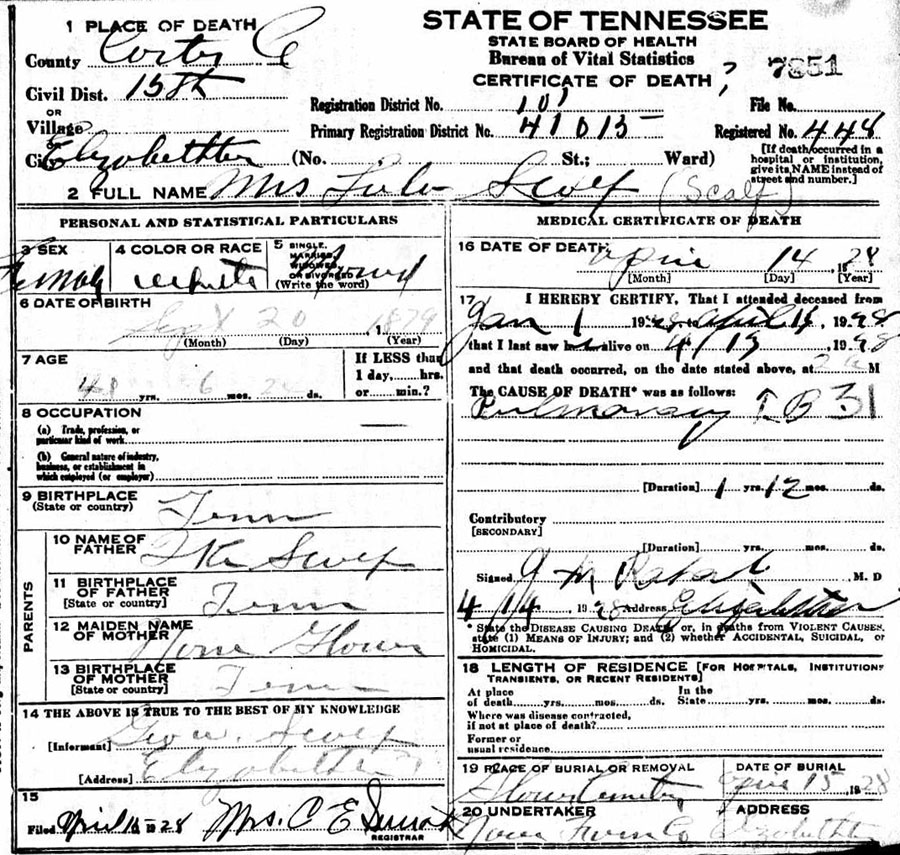 STATE OF TENNESSEE
STATE BOARD OF HEALTH
Bureau of Vital Statistics
CERTIFICATE OF DEATH
7851
1 PLACE OF DEATH
County Carter Co
Civil Dist. 15th
OR
Village
OR
City Elizabethton (No. St.; Ward)
Registration District No. 101
File No.
Primary Registration District No. 41015
Registered No. 448
[If death occurred in a hospital or institution, give its NAME instead of street and number.]
2 FULL NAME Mrs Lula Scalf (Scalf)
PERSONAL AND STATISTICAL PARTICULARS
3 SEX Female
4 COLOR OR RACE white
5 SINGLE, MARRIED, WIDOWED, OR DIVORCED
(Write the word)
6 DATE OF BIRTH
Sept 20, 1879
(Month) (Day) (Year)
7 AGE
48 yrs. 6 mos. ds.
If LESS than
1 day, hrs.
or min.?
8 OCCUPATION
(a) Trade, profession, or
particular kind of work
(b) General nature of industry,
business, or establishment in
which employed (or employer)
9 BIRTHPLACE
(State or country) Tenn
PARENTS
10 NAME OF
FATHER Ike Scalf
11 BIRTHPLACE
OF FATHER
[State or country] Tenn
12 MAIDEN NAME
OF MOTHER
13 BIRTHPLACE
OF MOTHER
[State or country] Tenn
14 THE ABOVE IS TRUE TO THE BEST OF MY KNOWLEDGE
[Informant] Scalf
[Address] Elizabethton
15
Filed April 16 1928 Mrs. C E
REGISTRAR
MEDICAL CERTIFICATE OF DEATH
16 DATE OF DEATH
April 14 1928
[Month] [Day] [Year]
17 I HEREBY CERTIFY, That I attended deceased from
Jan 1 1928 to April 14, 1928
that I last saw h alive on 4/13 1928
and that death occurred, on the date stated above, at 2 a M
The CAUSE OF DEATH* was as follows:
Pulmonary TB 31
[Duration] 1 yrs. 12 mos. ds.
Contributory
[SECONDARY]
[Duration] yrs. mos. ds.
Signed J M M. D
4/14 1928 Address Elizabethton
* State the DISEASE CAUSING DEATH, or, in deaths from VIOLENT CAUSES,
state (1) MEANS OF INJURY; and (2) whether ACCIDENTAL, SUICIDAL, or
HOMICIDAL.
18 LENGTH OF RESIDENCE [FOR HOSPITALS, INSTITUTIONS
TRANSIENTS, OR RECENT RESIDENTS]
At place In the
of death yrs. mos. ds. State yrs. mos. ds.
Where was disease contracted,
if not at place of death?
Former or
usual residence
19 PLACE OF BURIAL OR REMOVAL
DATE OF BURIAL
April 15 1928
20 UNDERTAKER
ADDRESS
Elizabethton